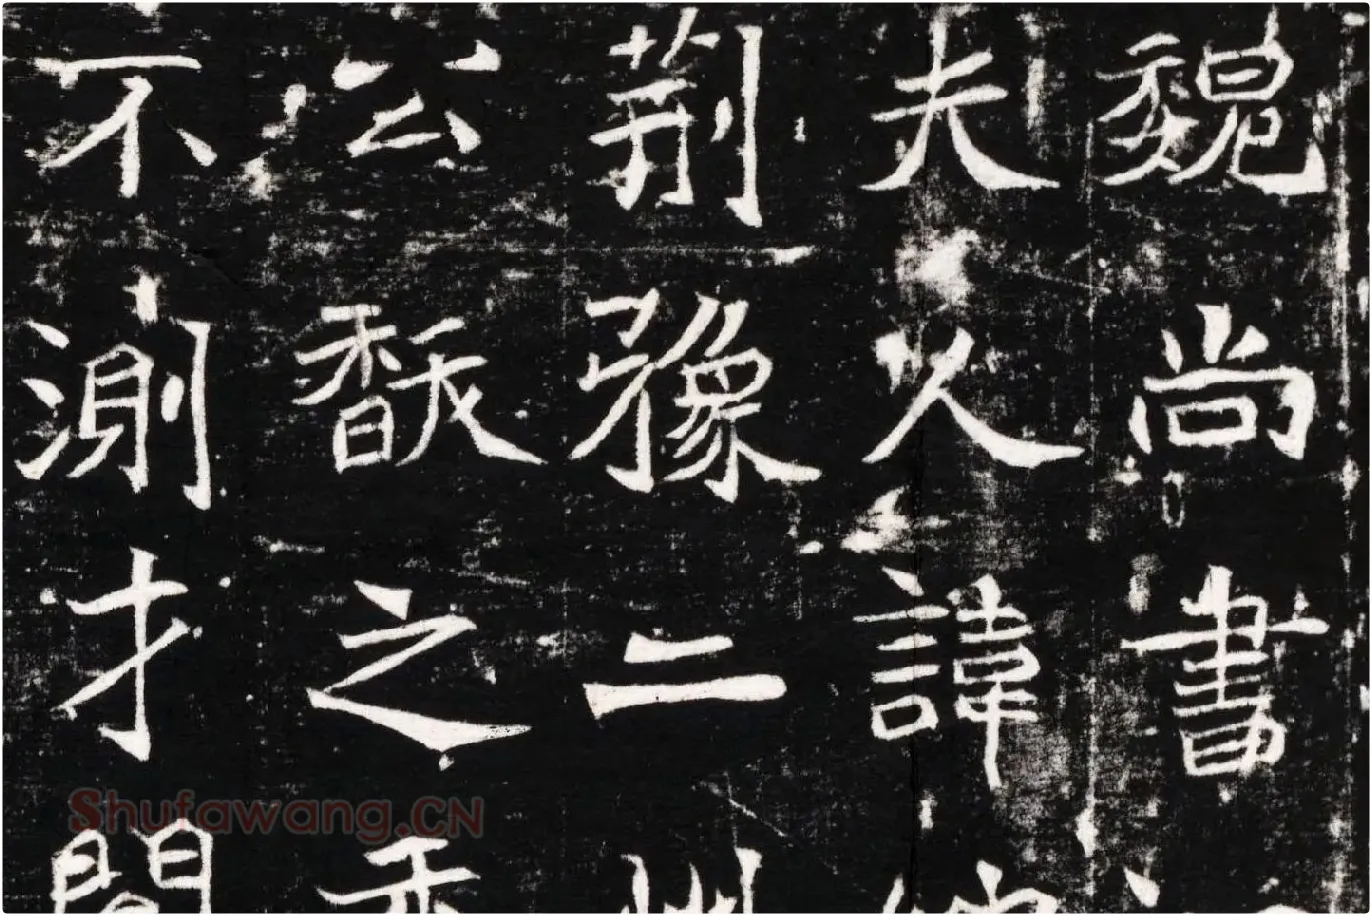 魏尚書
夫人諱
荊豫二州
公馛之
不測才
Shufawang.CN